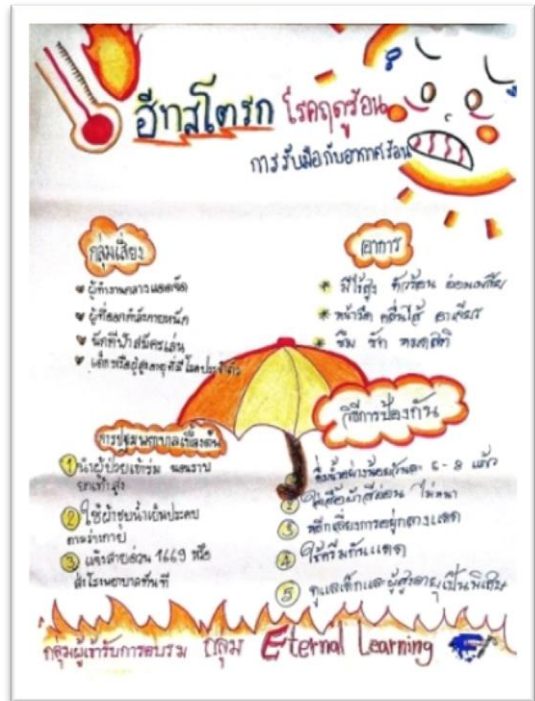 ฮีทสโตรก โรคฤดูร้อน
การรับมือกับอากาศร้อน
กลุ่มเสี่ยง
ผู้ทำงานกลางแดดจัด
ผู้ที่ออกกำลังกายหนัก
นักกีฬาสมัครเล่น
เด็กหรือผู้สูงอายุที่มีโรคประจำตัว
อาการ
มีไข้สูง ตัวร้อน อ่อนเพลีย
หน้ามืด คลื่นไส้ อาเจียน
ซึม ชัก หมดสติ
การปฐมพยาบาลเบื้องต้น
1 นำผู้ป่วยเข้าร่ม นอนราบ
ยกเท้าสูง
2 ใช้ผ้าชุบน้ำเย็นประคบ
ตามร่างกาย
3 แจ้งสายด่วน 1669 หรือ
ส่งโรงพยาบาลทันที
วิธีการป้องกัน
6 - 8 แก้ว
ไม่หนา
3 หลีกเลี่ยงการอยู่กลางแดด
4 ใช้ครีมกันแดด
5 ดูแลเด็กและผู้สูงอายุเป็นพิเศษ
กลุ่มผู้เข้ารับการอบรม กลุ่ม Eternal Learning